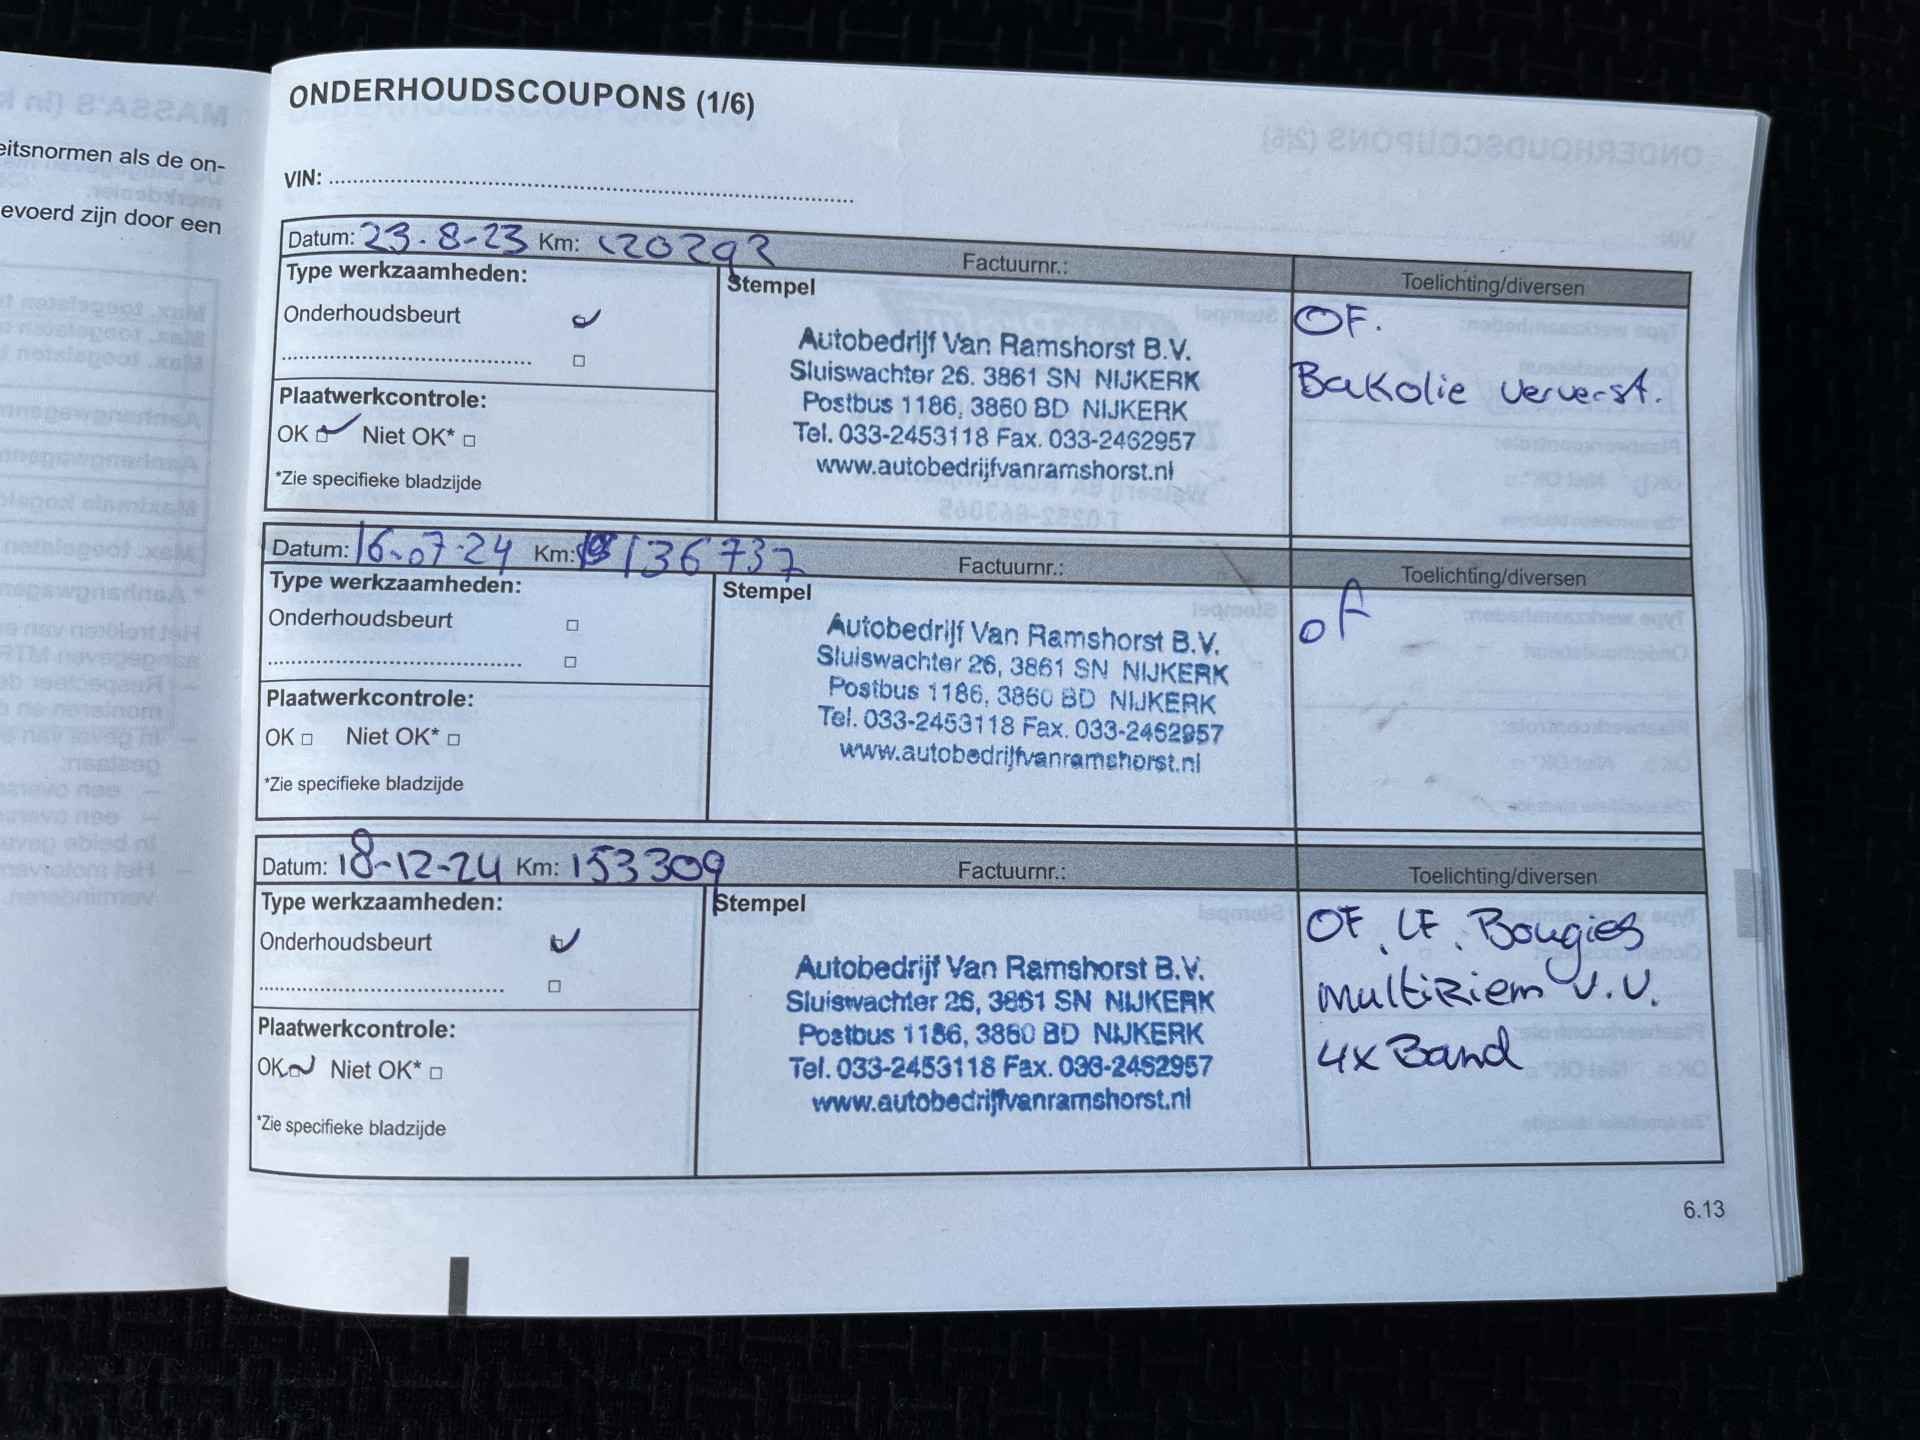 eitsnormen als de on-
evoerd zijn door een
ONDERHOUDSCOUPONS (1/6)
VIN:
Datum: 23-8-23 Km: 120292 Factuurnr.: Toelichting/diversen
Type werkzaamheden:
Stempel
Onderhoudsbeurt
Plaatwerkcontrole:
OK Niet OK*
*Zie specifieke bladzijde
Autobedrijf Van Ramshorst B.V.
Sluiswachter 26. 3861 SN NIJKERK
Postbus 1186, 3860 BD NIJKERK
Tel. 033-2453118 Fax. 033-2462957
www.autobedrijfvanramshorst.nl
OF.
Bakolie ververst.
Datum: 16-07-24 Km: 136737 Factuurnr.: Toelichting/diversen
Type werkzaamheden:
Stempel
Onderhoudsbeurt
Plaatwerkcontrole:
OK Niet OK*
*Zie specifieke bladzijde
Autobedrijf Van Ramshorst B.V.
Sluiswachter 26, 3861 SN NIJKERK
Postbus 1186, 3860 BD NIJKERK
Tel. 033-2453118 Fax. 033-2462957
www.autobedrijfvanramshorst.nl
of
Datum: 18-12-24 Km: 153309 Factuurnr.: Toelichting/diversen
Type werkzaamheden:
Stempel
Onderhoudsbeurt
Plaatwerkcontrole:
OK Niet OK*
*Zie specifieke bladzijde
Autobedrijf Van Ramshorst B.V.
Sluiswachter 26, 3861 SN NIJKERK
Postbus 1186, 3860 BD NIJKERK
Tel. 033-2453118 Fax. 033-2462957
www.autobedrijfvanramshorst.nl
OF. LF. Bougies
multiRiem V.V.
4x Band
6.13